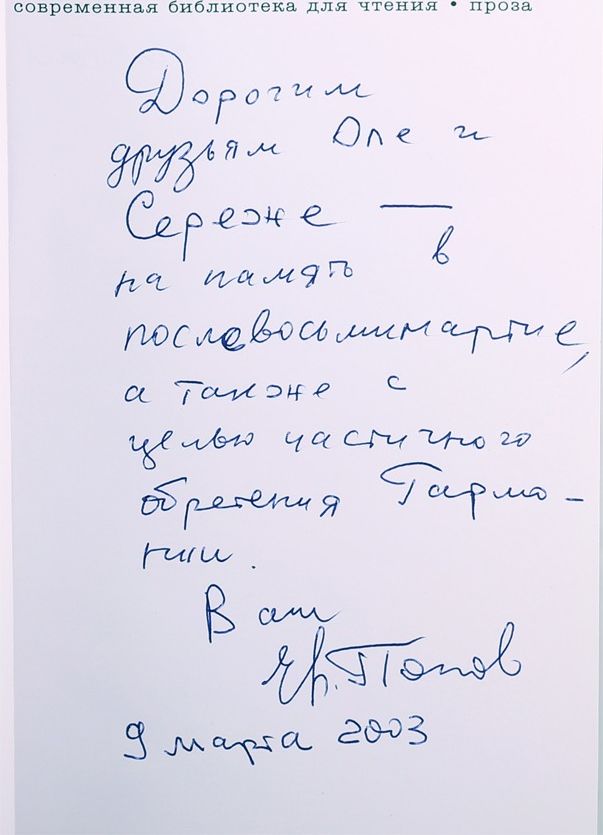 современная библиотека для чтения • проза
Дорогим
друзьям Оле и
Сереже —
на память в
послевосьмимартие,
а также с
целью частичного
обретения Гармо-
нии.
Ваш
Евг. Попов
9 марта 2003